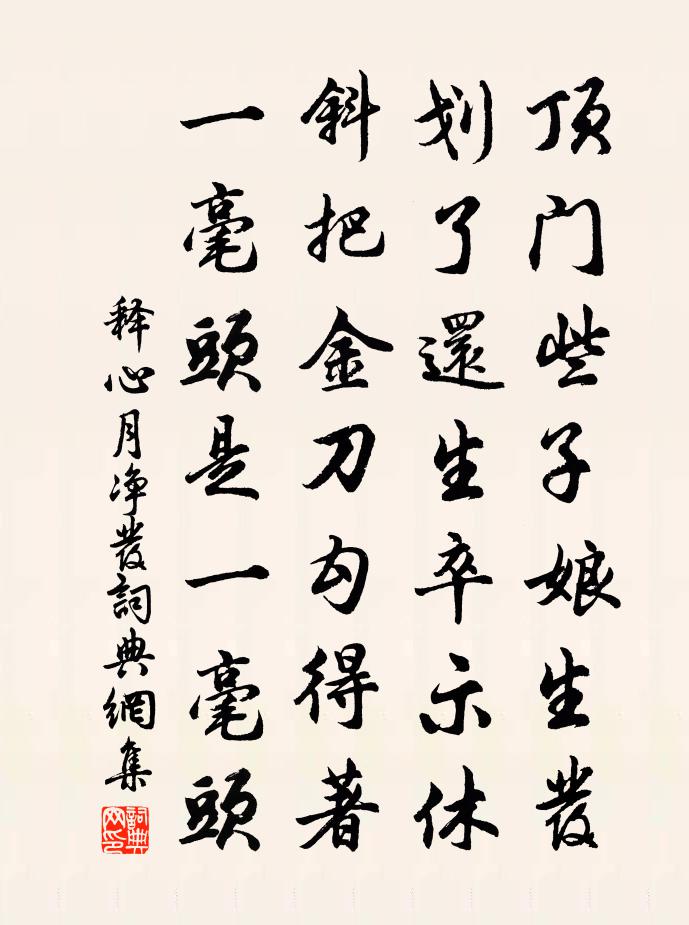 顶门些子娘生發
划了還生卒示休
斜把金刀勾得著
一毫頭是一毫頭
释心月净發詞典網集
詞典網印